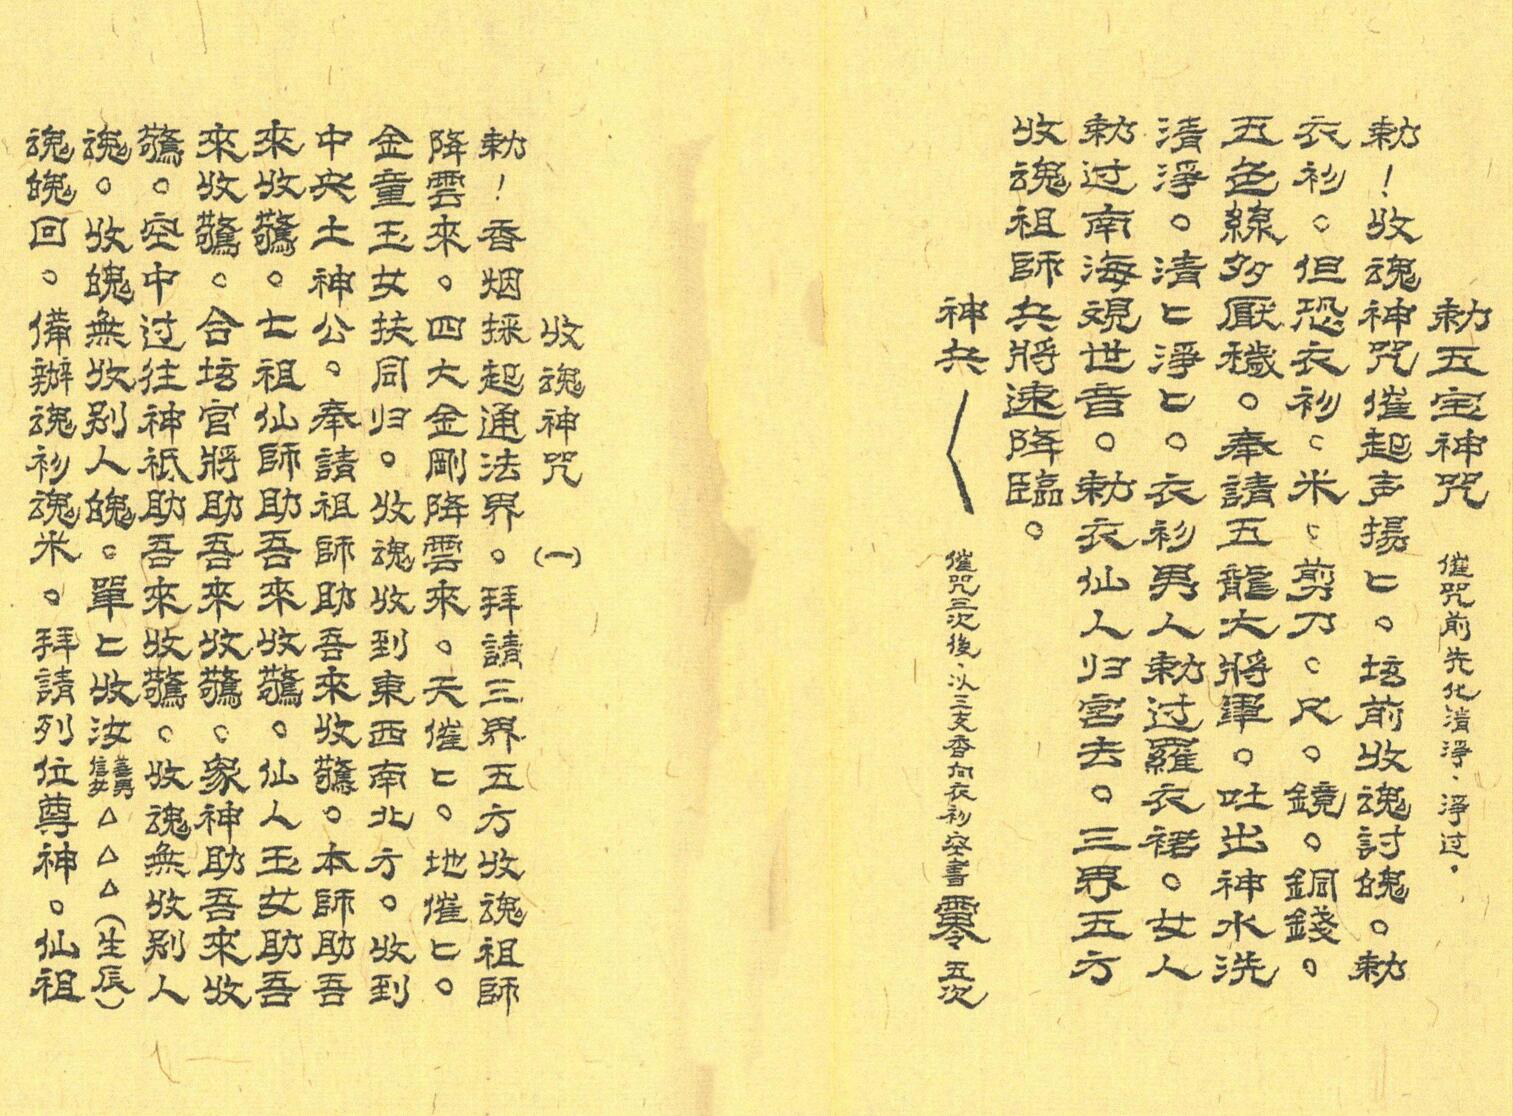 勅五宝神咒　催咒前先化清淨、淨过。
勅！收魂神咒催起声揚匕。坛前收魂討魄。勅
衣衫。但恐衣衫。米。剪刀。尺。鏡。銅錢。
五色線多厭穢。奉請五龍大將軍。吐出神水洗
清淨。清匕淨匕。衣衫男人勅过羅衣裙。女人
勅过南海観世音。勅衣仙人归宫去。三界五方
收魂祖師兵將速降臨。
神兵　催咒三次後、以三支香向衣衫容書　五次
收魂神咒　(一)
勅！香烟採起通法界。拜請三界五方收魂祖師
降雲來。四大金剛降雲來。天催匕。地催匕。
金童玉女扶同归。收魂收到東西南北方。收到
中央土神公。奉請祖師助吾來收驚。本師助吾
來收驚。七祖仙師助吾來收驚。仙人玉女助吾
來收驚。合坛官將助吾來收驚。家神助吾來收
驚。空中过往神祇助吾來收驚。收魂無收别人
魂。收魄無收别人魄。單匕收汝善男信女△△△(生辰)
魂魄回。備辦魂衫魂米。拜請列位尊神。仙祖